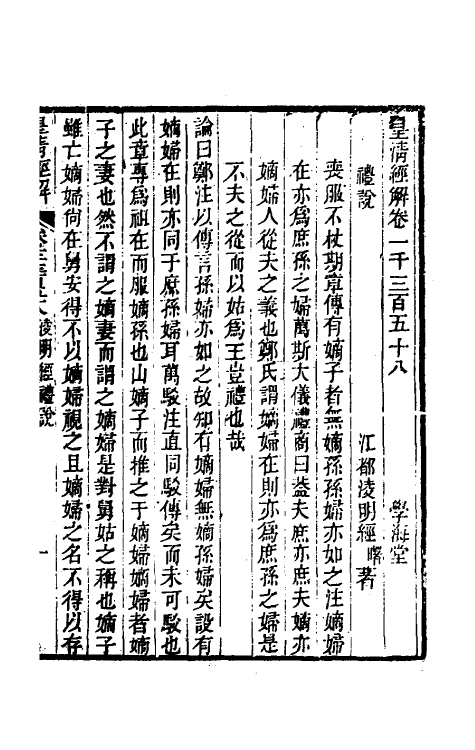 皇清經解卷一千三百五十八　學海堂
禮說　江都淩明經曙著
喪服不杖期章傳有嫡子者無嫡孫孫婦亦如之注嫡婦
在亦爲庶孫之婦萬斯大儀禮商曰蓋夫庶亦庶夫嫡亦
嫡婦人從夫之義也鄭氏謂嫡婦在則亦爲庶孫之婦是
不夫之從而以姑爲王豈禮也哉
論曰鄭注以傳言孫婦亦如之故知有嫡婦無嫡孫婦矣設有
嫡婦在則亦同于庶孫婦耳萬駮注直同駮傳矣而未可駮也
此章專爲祖在而服嫡孫也由嫡子而推之于嫡婦嫡婦者嫡
子之妻也然不謂之嫡妻而謂之嫡婦是對舅姑之稱也嫡子
雖亡嫡婦尙在舅安得不以嫡婦視之且嫡婦之名不得以存
皇清經解　淩明經禮說　一